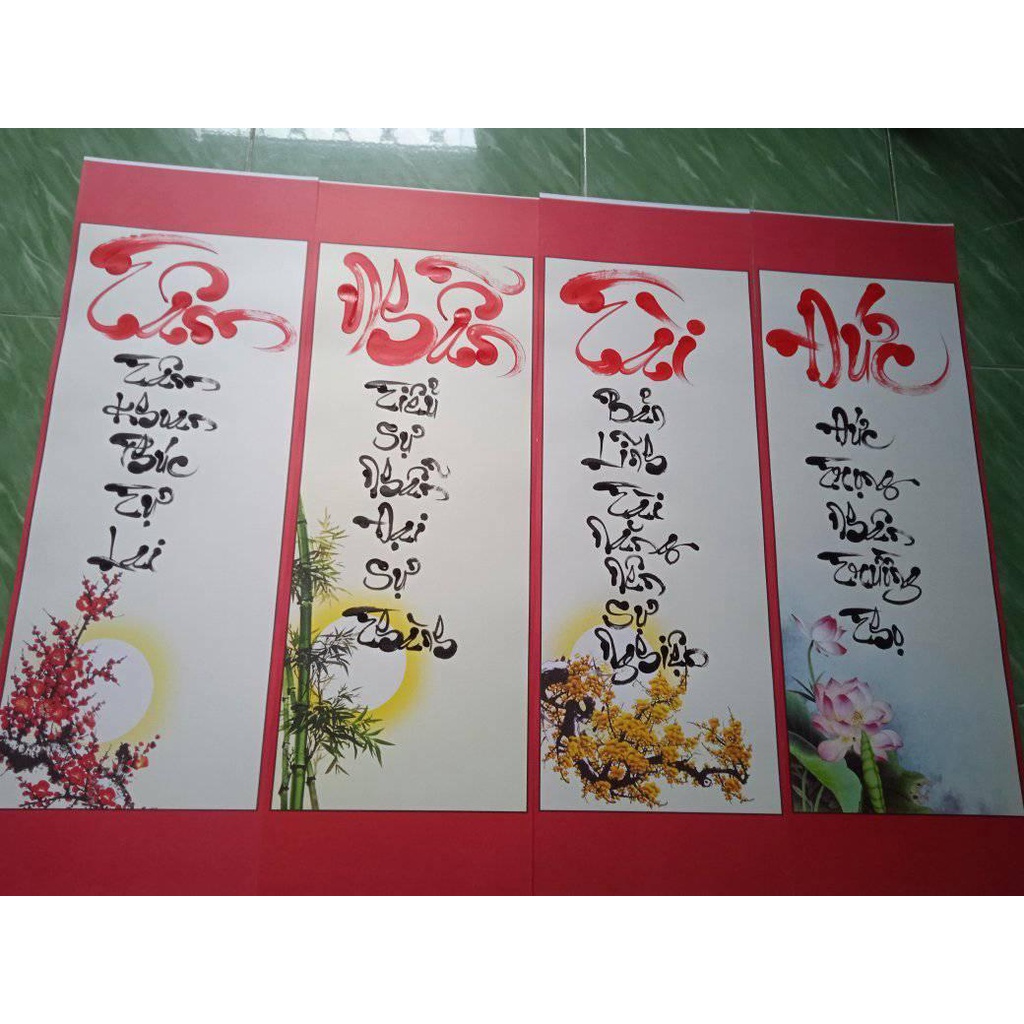 Tâm
Tâm
Khoan
Phúc
Tự
Lai
Nhẫn
Tiểu
Sự
Nhẫn
Đại
Sự
Thành
Tài
Bản
Lĩnh
Tài
Năng
Nên
Sự
Nghiệp
Đức
Đức
Trọng
Nhân
Trường
Thọ